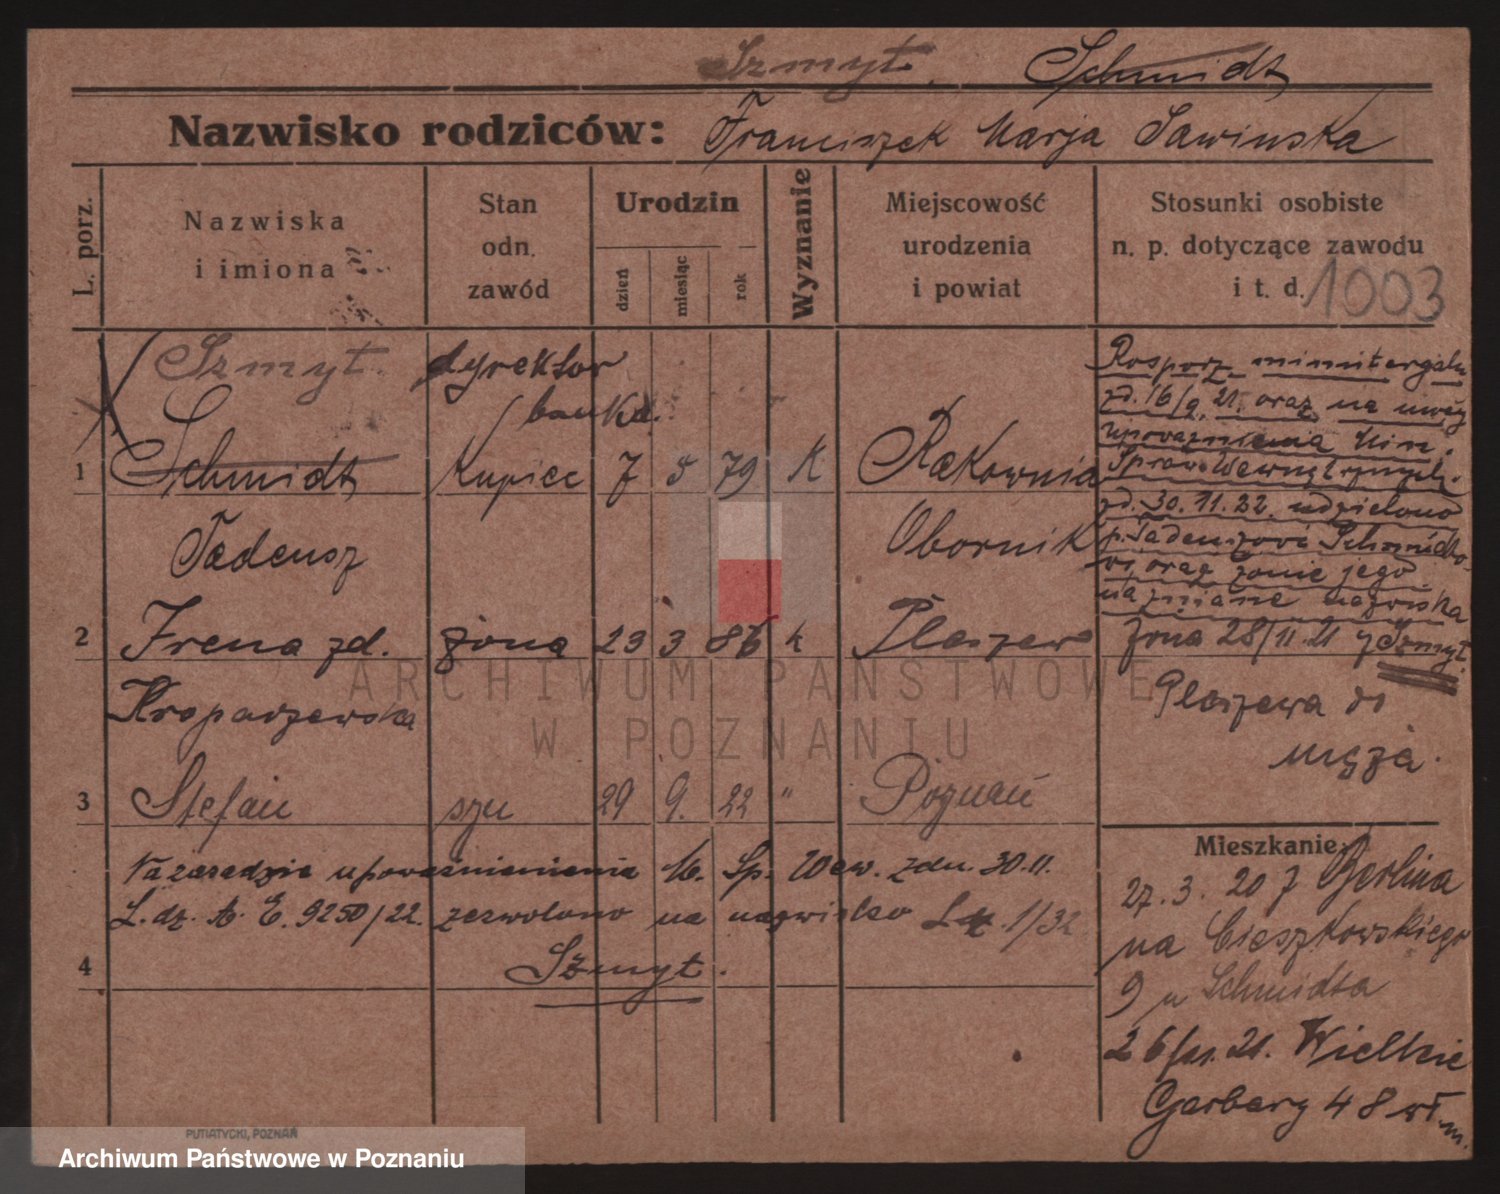 Szmyt. Schmidt
Nazwisko rodziców: Franciszek Marja Sawinska
L. porz.
Nazwiska
i imiona
Stan
odn.
zawód
Urodzin
dzień
miesiąc
rok
Wyznanie
Miejscowość
urodzenia
i powiat
Stosunki osobiste
n. p. dotyczące zawodu
i t. d.
1003
Szmyt. dyrektor
banku.
1 Schmidt Kupiec 7 5 79 K Rakownia
Tadeusz Obornik
2 Irena zd. żona 23 3 86 k Pleszew
Kroparzewska
3 Stefan syn 29 9. 22 " Poznań
Na zasadzie upoważnienienia M. Sp. Wew. zdn. 30.11.
L. dz. A. E. 9250/22. zezwolono na nazwisko 1/32
4 Szmyt.
Rosporz. ministerjaln
zd. 16/9. 21. oraz na mocy
upoważnienia Min.
Spraw Wewnętrznych.
zd. 30.11.22 udzielono
p. Tadeuszowi Schmidto-
wi oraz żonie jego
na zmianę nazwiska
żona 28/11.21 z Szmyt.
Pleszewa do
męża.
Mieszkanie:
27. 3. 20 z Berlina
na Cieszkowskiego
9 u Schmidta
26/11. 21. Wielkie
Garbary 48 wł. m.
PUTIATYCKI, POZNAŃ
ARCHIWUM PAŃSTWOWE
W POZNANIU
Archiwum Państwowe w Poznaniu